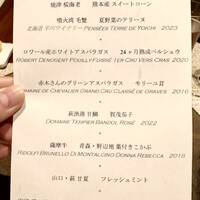 焼津 桜海老　熊本産スイートコーン
噴火湾 毛蟹　夏野菜のテリーヌ
北海道 平川ワイナリー PENSÉES TERRE DE YOICHI 2023
ロワール産ホワイトアスパラガス　24ヶ月熟成ペルシュウ
ROBERT DENOGENT POUILLY-FUISSÉ 1ER CRU VERS CRAS 2020
赤木さんのグリーンアスパラガス　モリーユ茸
DOMAINE DE CHEVALIER GRAND CRU CLASSÉ DE GRAVES 2016
萩漁港 甘鯛　賀茂茄子
DOMAINE TEMPIER BANDOL ROSÉ 2022
薩摩牛　青森・野辺地 葉付きこかぶ
RIDOLFI BRUNELLO DI MONTALCINO DONNA REBECCA 2018
山口・萩 甘夏　フレッシュミント